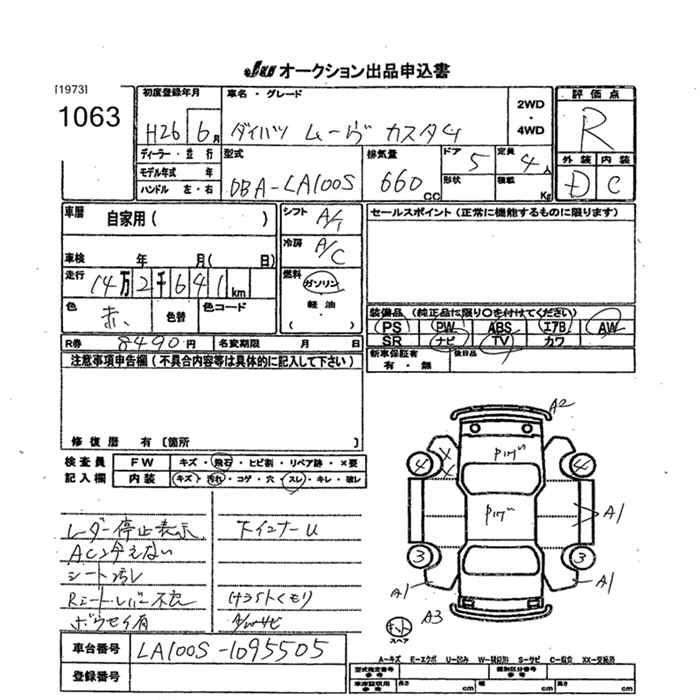 JU オークション出品申込書
[1973]
1063
初度登録年月 車名・グレード 2WD・4WD 評価点
H26 6月 ダイハツ ムーヴ カスタム R
ディーラー・並行 型式 排気量 ドア 5 定員 4人 外装 内装
モデル年式 年
ハンドル 左・右 DBA-LA100S 660cc 形状 積載 Kg D C
車暦 自家用 ( ) シフト A/T セールスポイント (正常に機能するものに限ります)
冷房 A/C
車検 年 月 ( 日)
走行 14万2千641km 燃料 ガソリン
軽油・
( )
色 赤 色替 色コード
装備品 (純正品に限り○を付けてください)
PS PW ABS エアB AW
SR ナビ TV カワ
R券 8490円 名変期限 月 日
新車保証有 有・無 後日品
注意事項申告欄 (不具合内容等は具体的に記入して下さい)
修復暦 有 [箇所 ]
検査員 FW キズ・飛石・ヒビ割・リペア跡・×要
記入欄 内装 キズ・汚れ・コゲ・穴・スレ・キレ・破レ
レーダー停止表示 下インナーU
ACン冷えない
シート汚レ
Rシートレバー不良
A2
4 4
A1
3 3
A1 A1
A3
スペア
車台番号 LA100S-1095505
登録番号
A-キズ E-エクボ U-凹み S-サビ C-腐蝕 XX-交換済
型式指定番号 参考 類別区分番号 参考
車庫証明用 参考 長さ cm 幅 cm 高さ cm